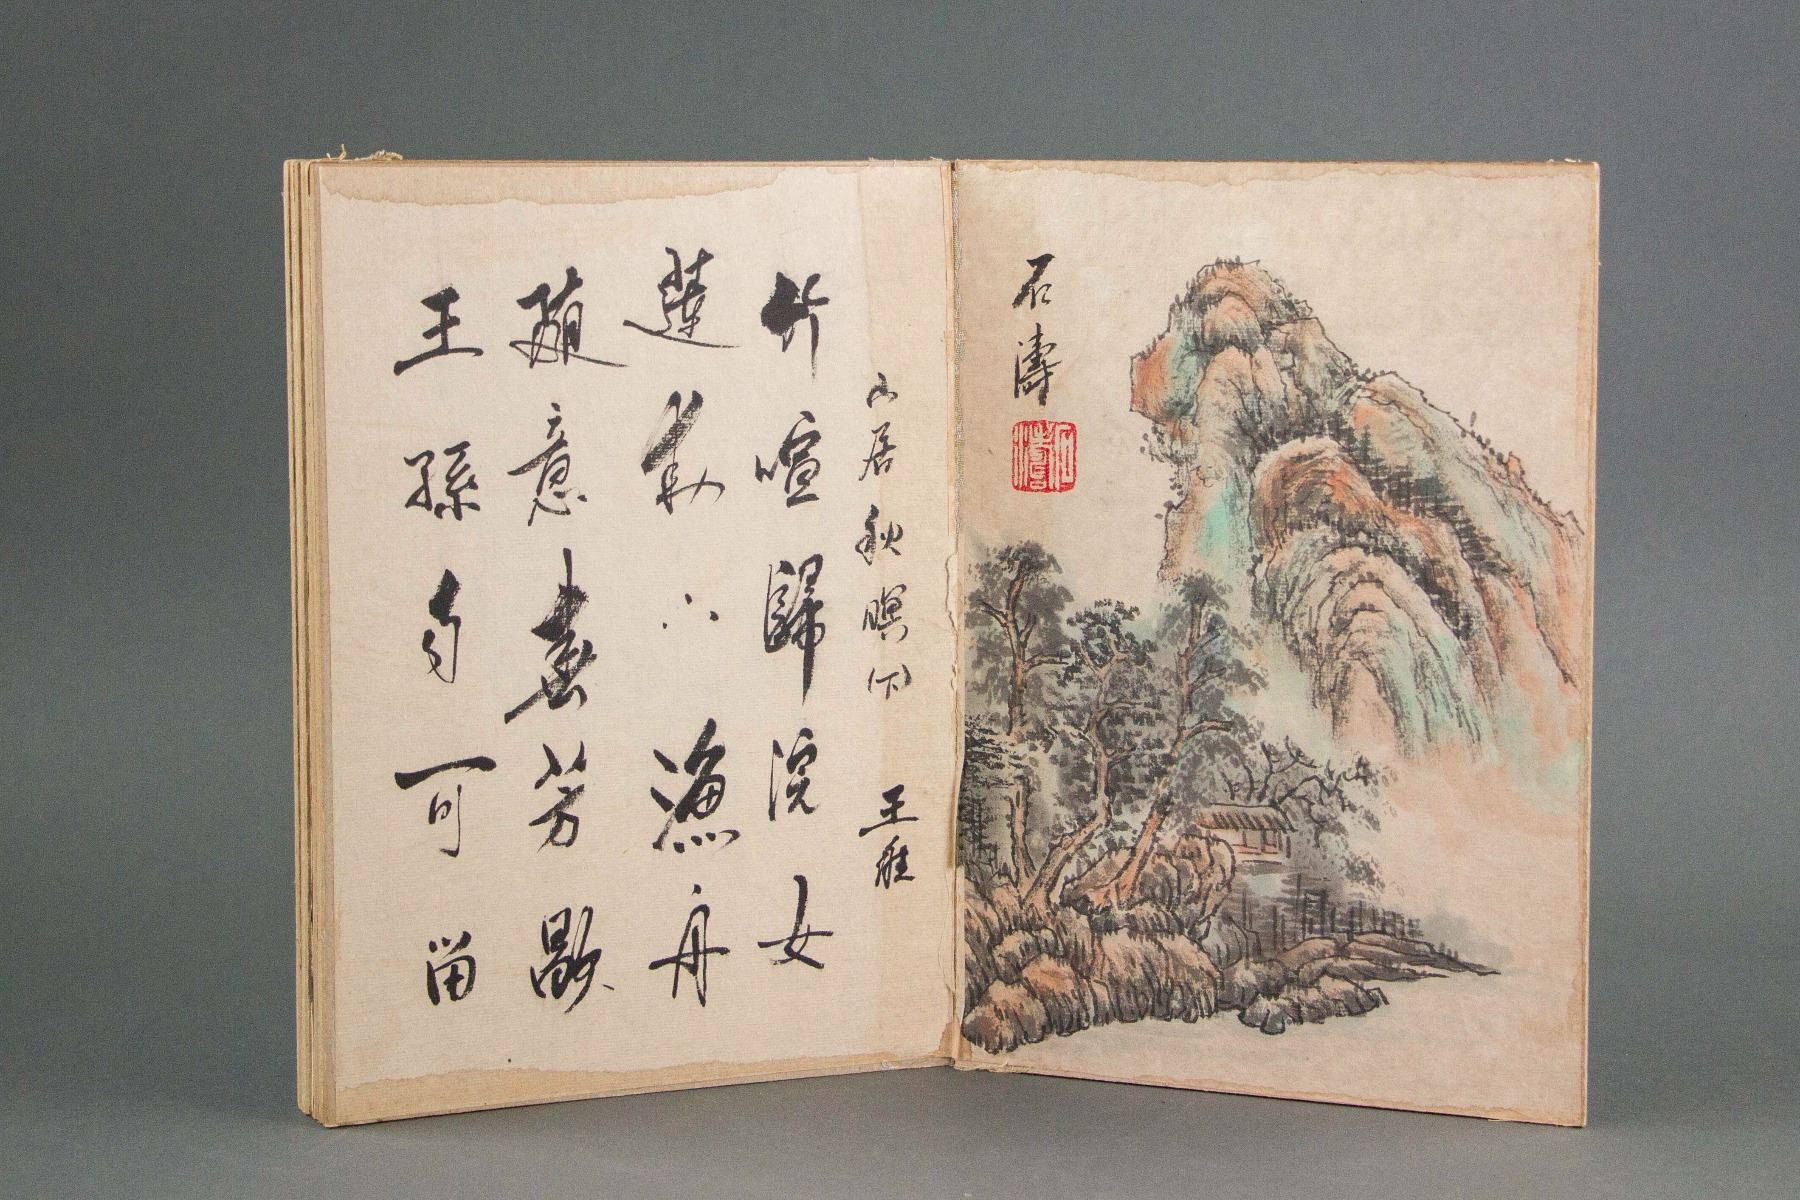 石濤
石濤
山居秋暝(下) 王維
竹喧歸浣女
蓮動下漁舟
隨意春芳歇
王孫自可留